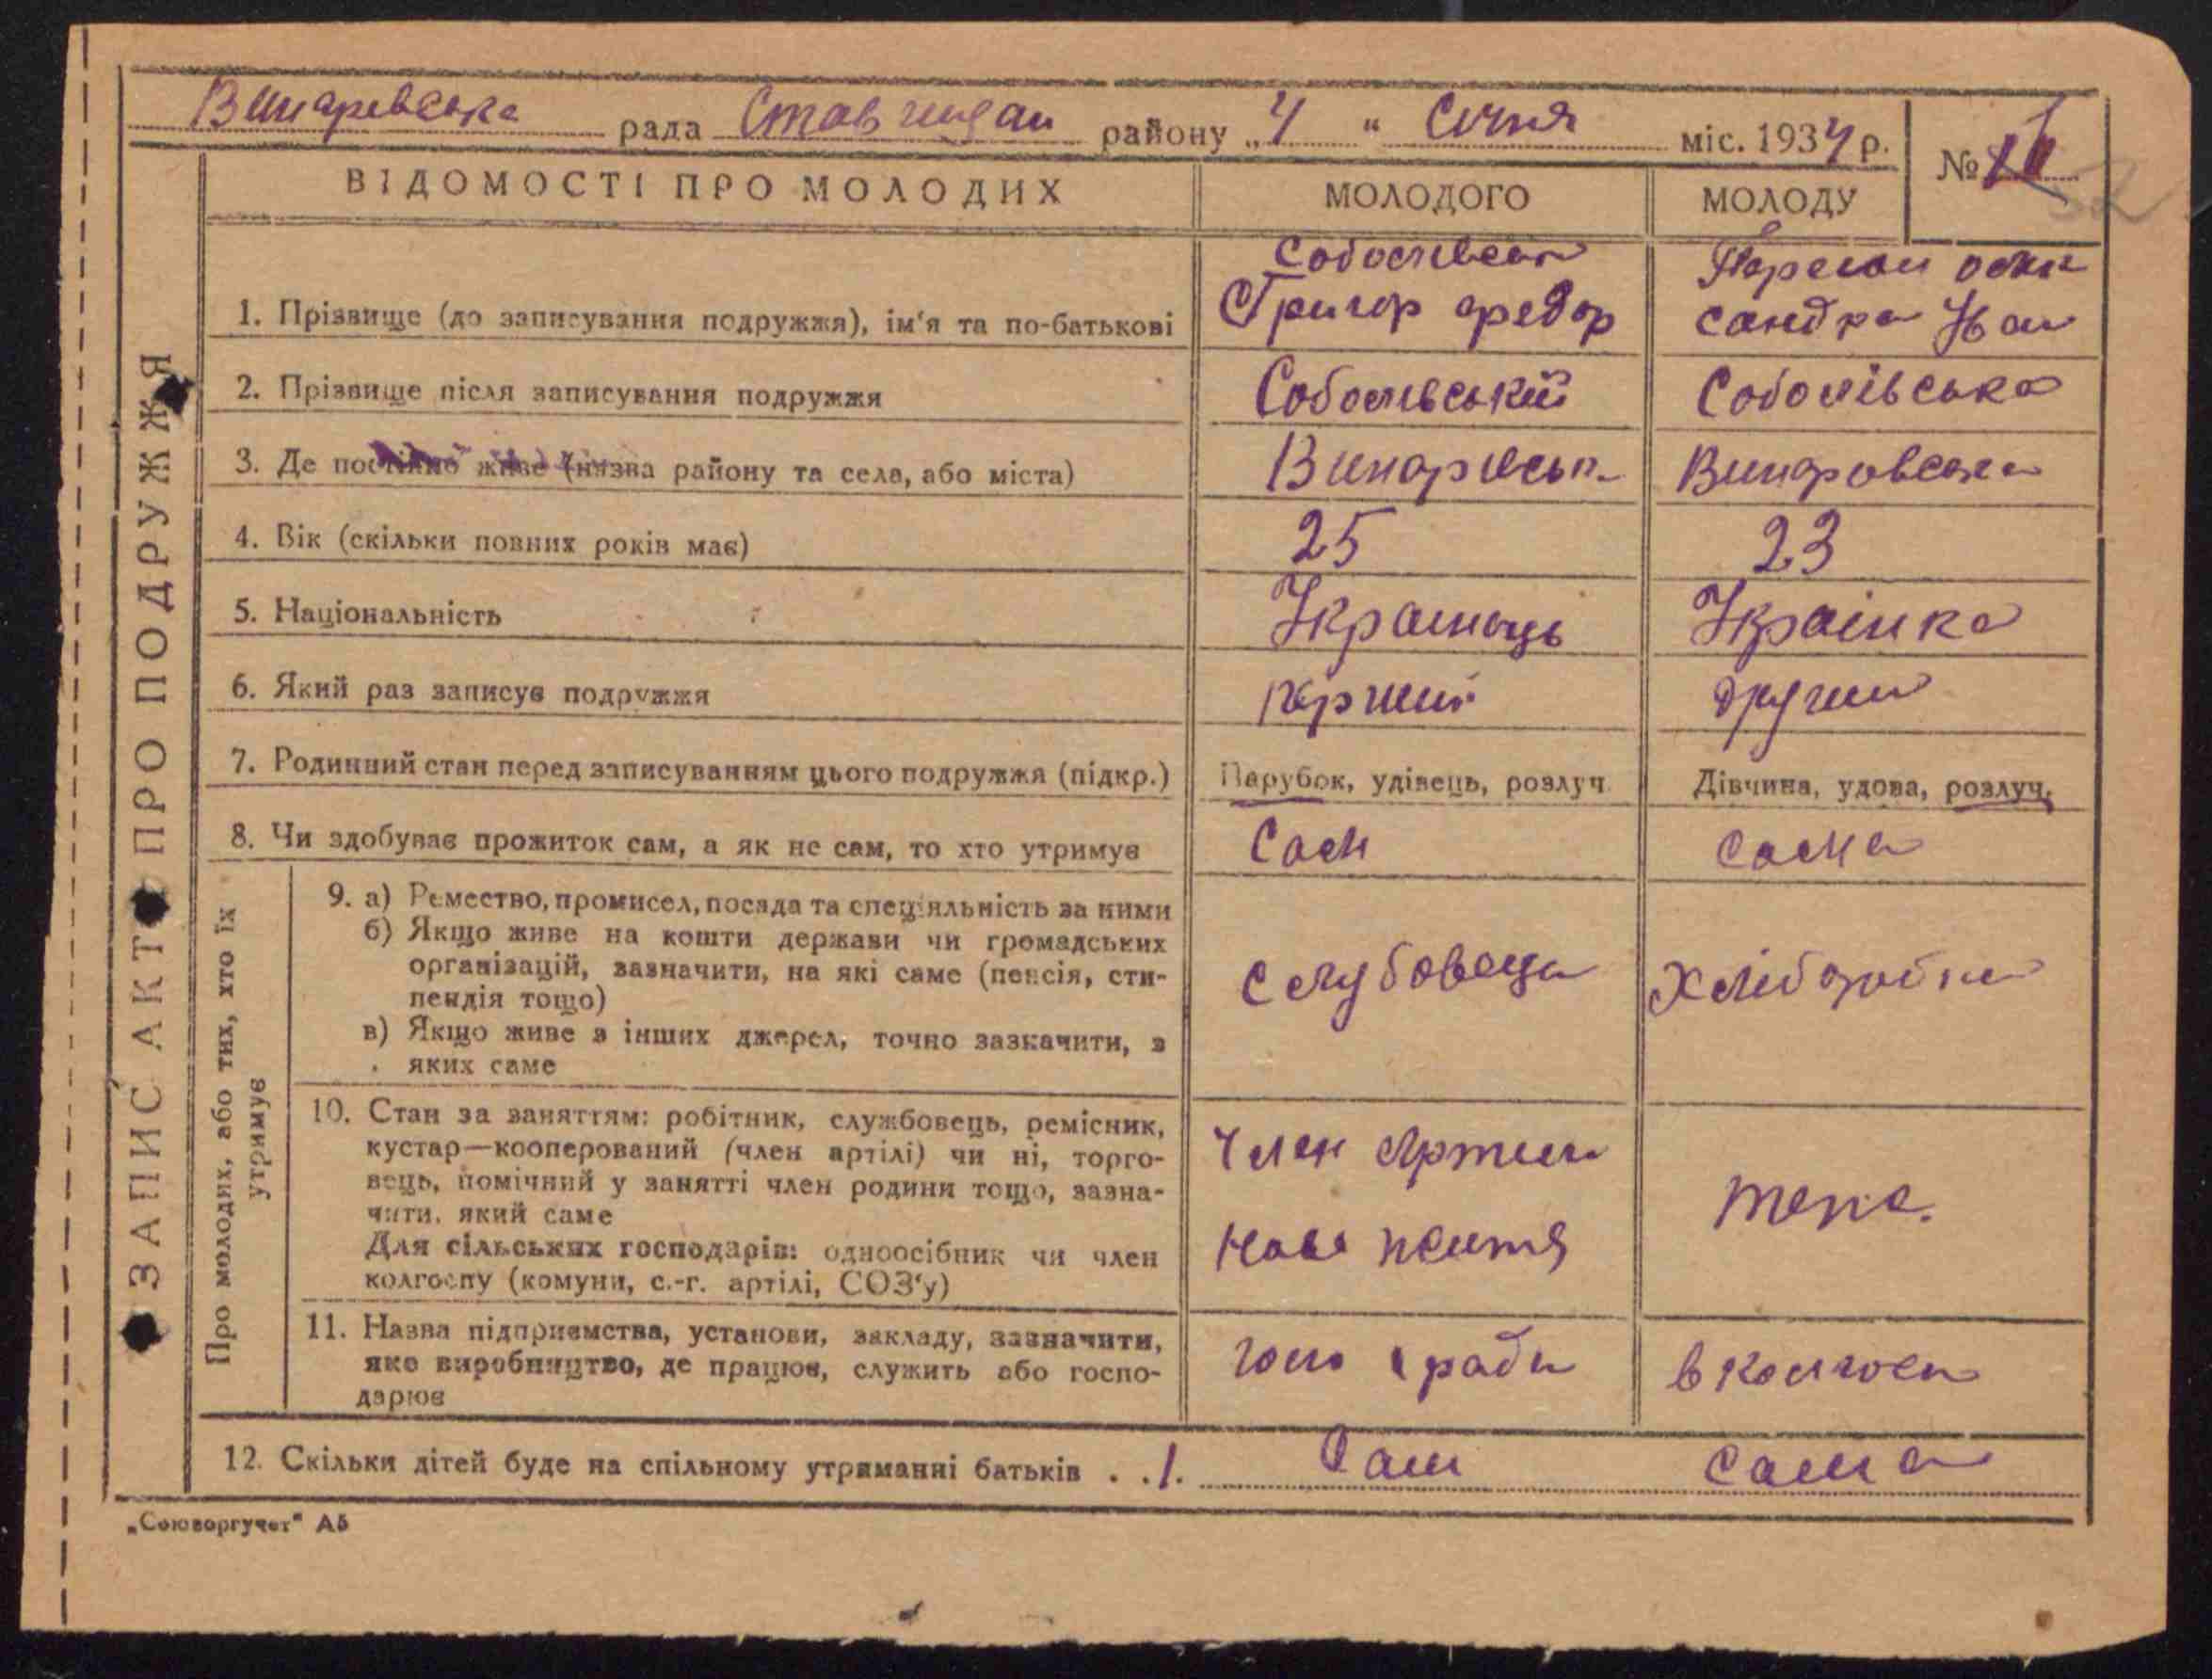 Винаревська рада Ставищан району „4“ Січня міс. 1934 р.
№
ВІДОМОСТІ ПРО МОЛОДИХ
МОЛОДОГО
МОЛОДУ
ЗАПИС АКТ ПРО ПОДРУЖЖЯ
1. Прізвище (до записування подружжя), ім'я та по-батькові
Соболівськ
Григор Федор
сандра Іван
2. Прізвище після записування подружжя
Соболівський
Соболівська
3. Де постійно живе (назва району та села, або міста)
Винарівськ
Винаровська
4. Вік (скільки повних років має)
25
23
5. Національність
Українець
Українка
6. Який раз записує подружжя
перший
другий
7. Родинний стан перед записуванням цього подружжя (підкр.)
Парубок, удівець, розлуч.
Дівчина, удова, розлуч.
8. Чи здобуває прожиток сам, а як не сам, то хто утримує
Сам
сама
Про молодих, або тих, хто їх
утримує
9. а) Ремество, промисел, посада та спеціяльність за ними
б) Якщо живе на кошти держави чи громадських
організацій, зазначити, на які саме (пенсія, сти-
пендія тощо)
в) Якщо живе з інших джерел, точно зазначити, з
яких саме
служbовець
хлібороб
10. Стан за заняттям: робітник, службовець, ремісник,
кустар—кооперований (член артілі) чи ні, торго-
вець, помічний у занятті член родини тощо, зазна-
чити, який саме
Для сільських господарів: одноосібник чи член
колгоспу (комуни, с.-г. артілі, СОЗ'у)
Член Артілі
Нове життя
теж.
11. Назва підприємства, установи, закладу, зазначити,
яке виробництво, де працює, служить або госпо-
дарює
ради
в колгосп
12. Скільки дітей буде на спільному утриманні батьків . . 1.
Сам
сама
„Союзоргучет“ А5